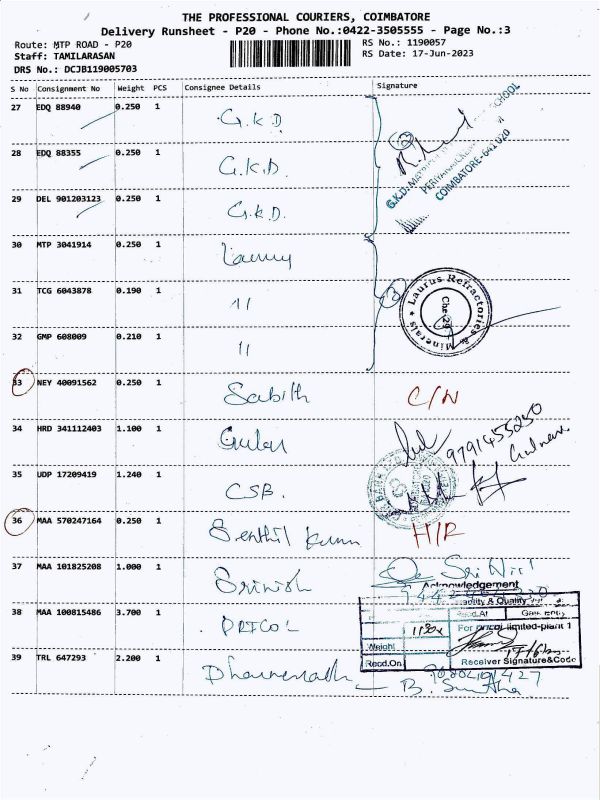 THE PROFESSIONAL COURIERS, COIMBATORE
Delivery Runsheet - P20 - Phone No.:0422-3505555 - Page No.:3
Route: MTP ROAD - P20 RS No.: 1190057
Staff: TAMILARASAN RS Date: 17-Jun-2023
DRS No.: DCJB119005703
S No Consignment No Weight PCS Consignee Details Signature
27 EDQ 88940 0.250 1 G.K.D
28 EDQ 88355 0.250 1 G.K.D.
29 DEL 901203123 0.250 1 G.K.D.
G.K.D. SCHOOL
COIMBATORE-641 020
30 MTP 3041914 0.250 1
31 TCG 6043878 0.190 1 11
Laurus Refractories & Minerals
32 GMP 608009 0.210 1 11
33 NEY 40091562 0.250 1 Sabith C/N
34 HRD 341112403 1.100 1
9791455250
35 UDP 17209419 1.240 1 CSB.
36 MAA 570247164 0.250 1 Senthil Kumar H/R
37 MAA 101825208 1.000 1
Acknowledgement
Quantity & Quality
38 MAA 100815486 3.700 1 PRICOL
For pricol limited-plant 1
Weight
Recd.On Receiver Signature&Code
39 TRL 647293 2.200 1